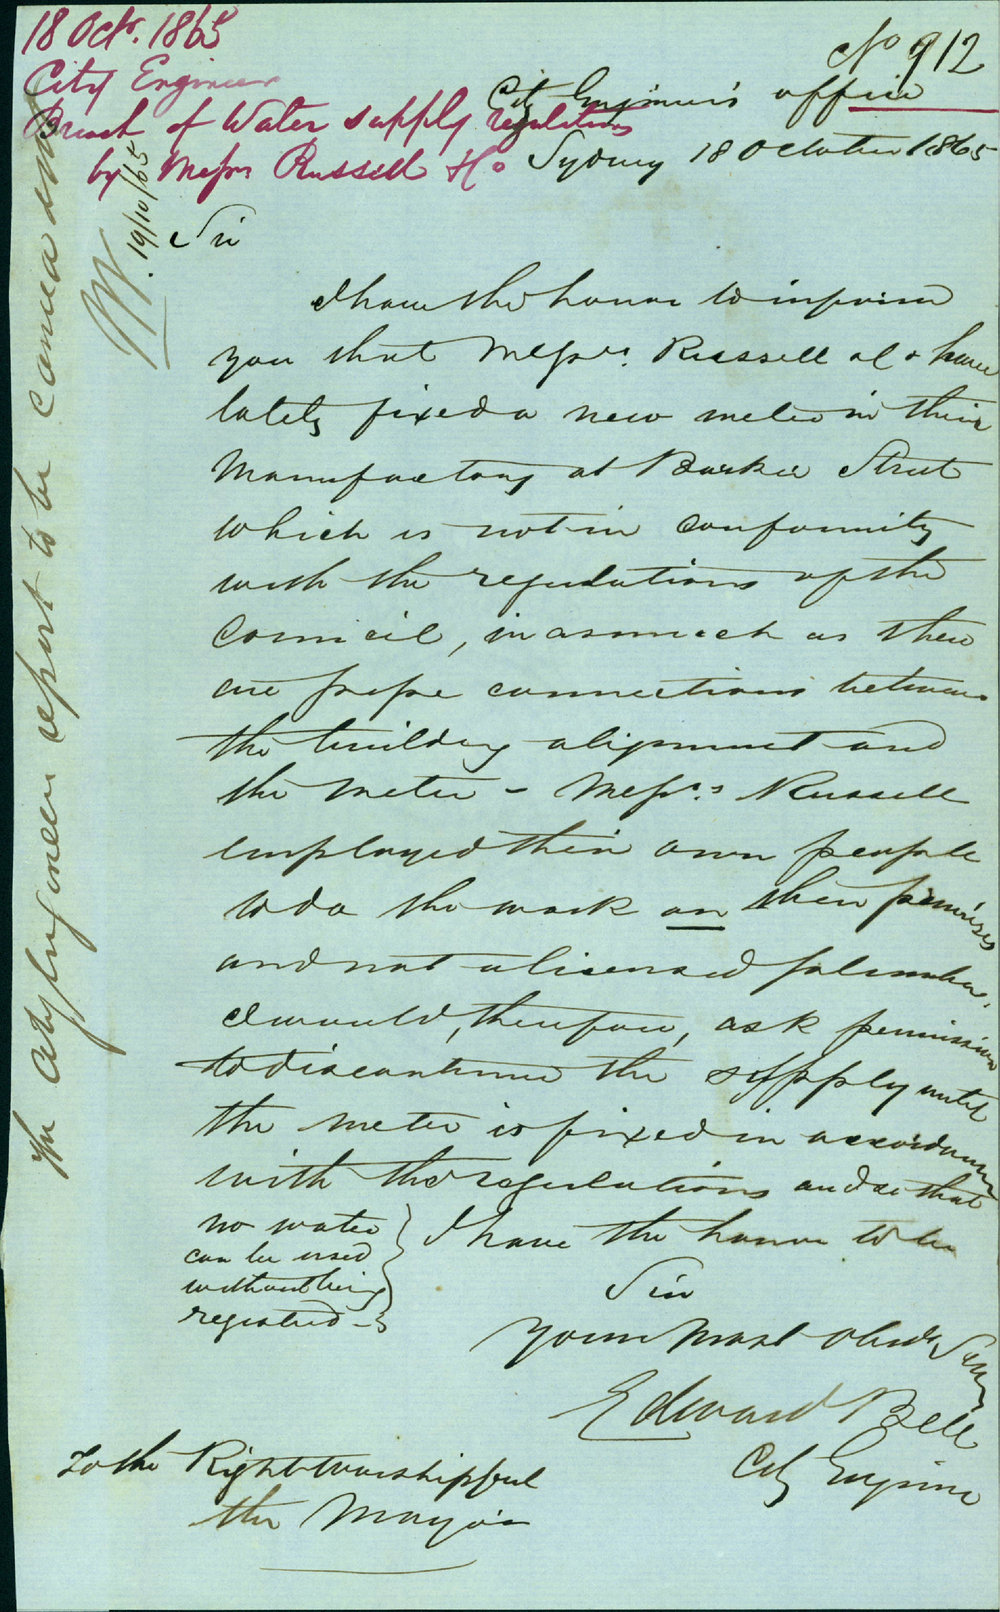 18 Octr. 1865
City Engineer
Breach of Water supply regulations
by Messrs Russell & Co
No 912
City Engineer's office
Sydney 18 October 1865
Sir
I have the honor to inform
you that Messrs. Russell & Co have
lately fixed a new meter in their
Manufactory at Barker Street
which is not in conformity
with the regulations of the
Council, in as much as there
are pipe connections between
the building alignment and
the meter - Messrs. Russell
employed their own people
to do the work on their premises
and not a licensed plumber.
I would, therefore, ask permission
to discontinue the supply until
the meter is fixed in accordance
with the regulations and so that
no water
can be used
without being
registered -
I have the honor to be
Sir
Your Most Obedt Servt
Edward Bell
City Engineer
To the Right Worshipful
the Mayor
The City Engineer report to be carried out
19/10/65